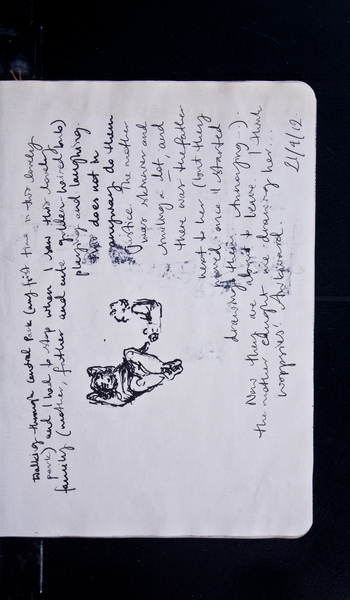 Walking through Central Park (my first time in this lovely
park) and I had to stop when I saw this lovely
family (mother, father and cute golden haired bub)
playing and laughing.
This does not in
anyway do them
justice. The mother
was and
smiling a lot and
there was the father
next to her (but they
once I started
drawing them. Annoying...).
Now they are about to leave. I think
the mother caught me drawing her...
woopsies! Awkward.
21/9/12.